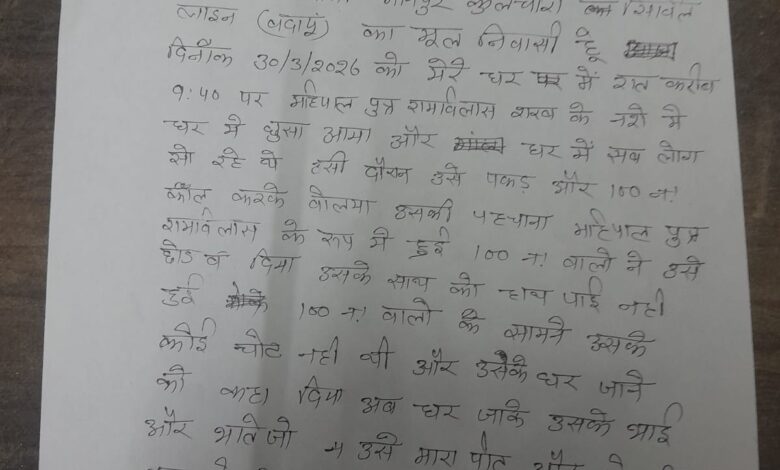 कुलचोरा सिविल
लाइन (बदायूं) का मूल निवासी हूं
दिनाँक 30/3/2026 को मेरे घर पर में रात करीब
9:40 पर महिपाल पुत्र रामविलास शराब के नशे में
घर में घुसा आया और घर में सब लोग
सो रहे थे इसी दौरान उसे पकड़ और 100 न!
कॉल करके बोलया उसकी पहचाना महिपाल पुत्र
रामविलास के रूप में हुई 100 न! वालो ने उसे
छोड़ व दिया उसके साथ को हाथ पाई नही
हुई 100 न! वालो के सामने उसके
कोई चोट नही थी और उसके घर जाने
को कहा दिया अब घर जाके उसके भाई
और भातेजो न उसे मारा पीट और